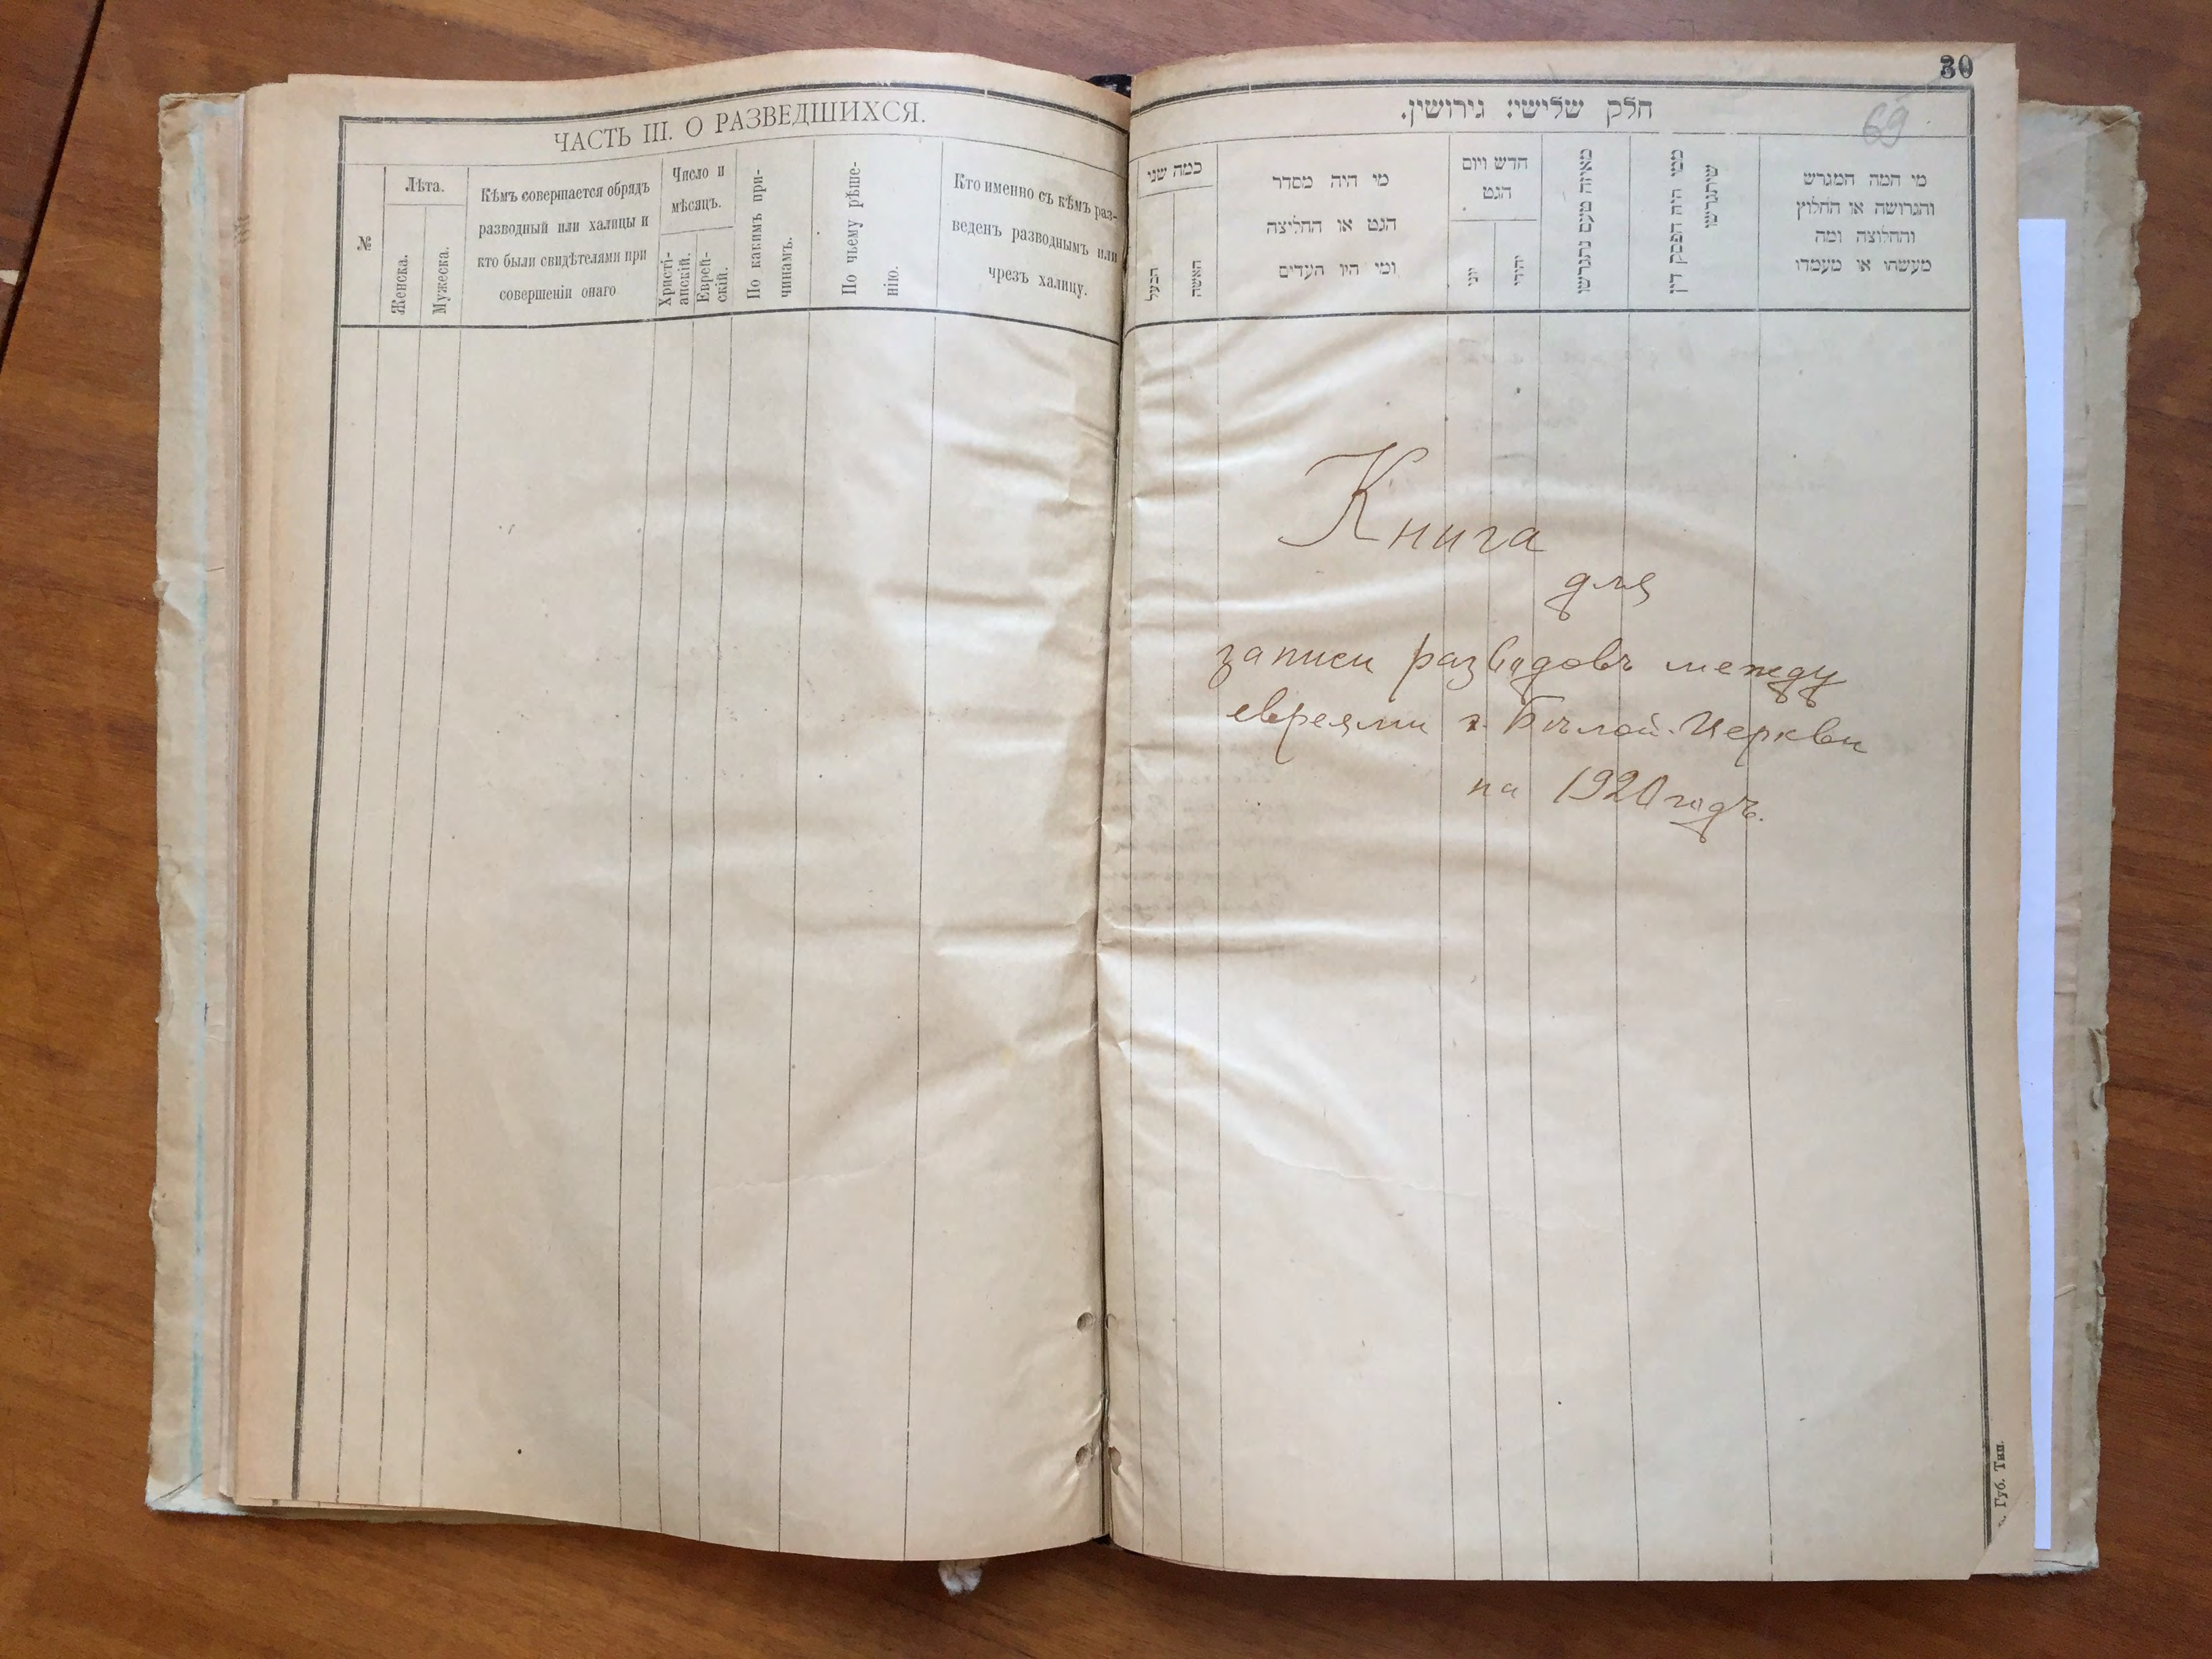 ЧАСТЬ III. О РАЗВЕДШИХСЯ.
№
Лѣта.
Женска.
Мужеска.
Кѣмъ совершается обрядъ
разводный или халицы и
кто были свидѣтелями при
совершеніи онаго
Число и
мѣсяцъ.
Христі-
анскій.
Еврей-
скій.
По какимъ при-
чинамъ.
По чьему рѣше-
нію.
Кто именно съ кѣмъ раз-
веденъ разводнымъ или
чрезъ халицу.
30
69
חלק שלישי: גירושין.
כמה שני
הבעל
האשה
מי היה מסדר
הגט או החליצה
ומי היו העדים
חדש ויום
הגט
יוני
יהודי
מאיזה טעם נתגרשו
ממי היה הפסק דין
שיתגרשו
מי המה המגרש
והגרושה או החלוץ
והחלוצה ומה
מעשהו או מעמדו
Книга
для
записи разводовъ между
евреями г. Бѣлой-Церкви
на 1920 годъ.
Губ. Тип.